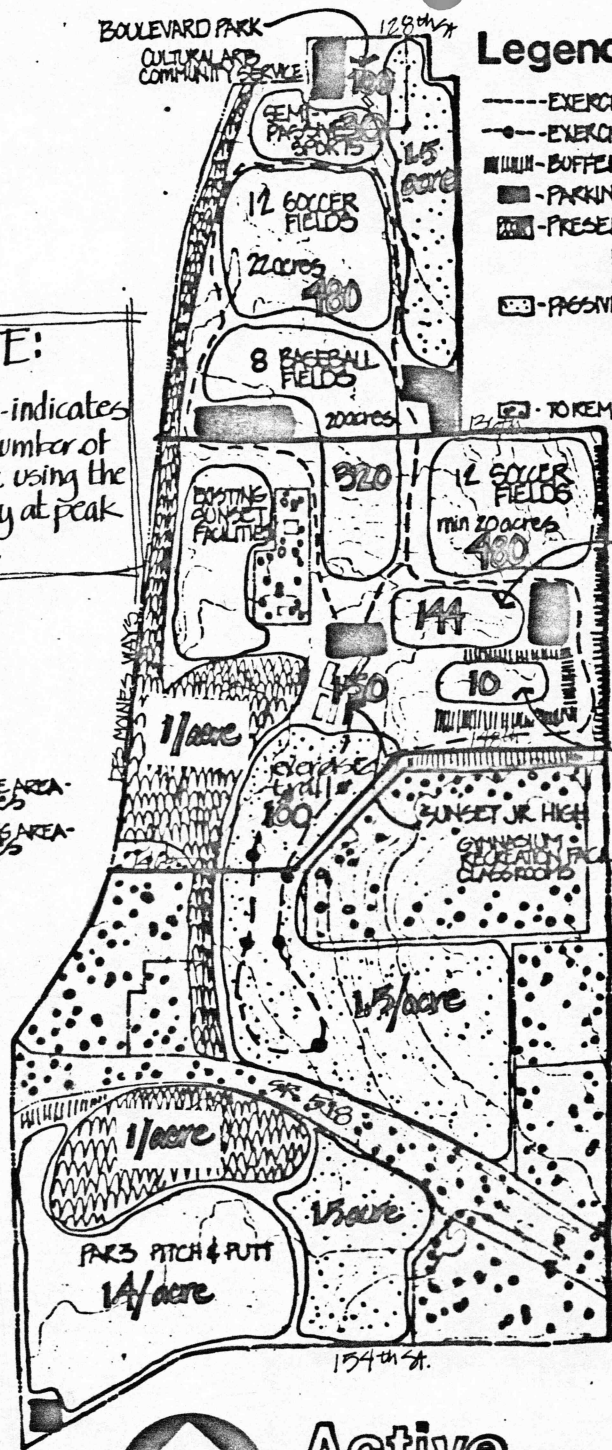 BOULEVARD PARK
CULTURAL ARTS
COMMUNITY SERVICE
128th St
Legend
EXERCI
EXERCI
BUFFE
PARKIN
PRESE
PASSIV
TO REM
100
SEMI-
PASSIVE
SPORTS
30
1.5
acre
12 SOCCER
FIELDS
22 acres
480
8 BASEBALL
FIELDS
20 acres
E:
-indicates
umber of
using the
y at peak
320
12 SOCCER
FIELDS
min 20 acres
480
EXISTING
SUNSET
FACILITIES
144
10
150
DES MOINES WAY S
1/acre
exercise
trail
160
E AREA-
S AREA-
SUNSET JR HIGH
GYMNASIUM
RECREATION FAC
CLASSROOMS
1.5/acre
SR 518
1/acre
1.5 acre
PAR 3 PITCH & PUTT
1.4/acre
154th St.
Active